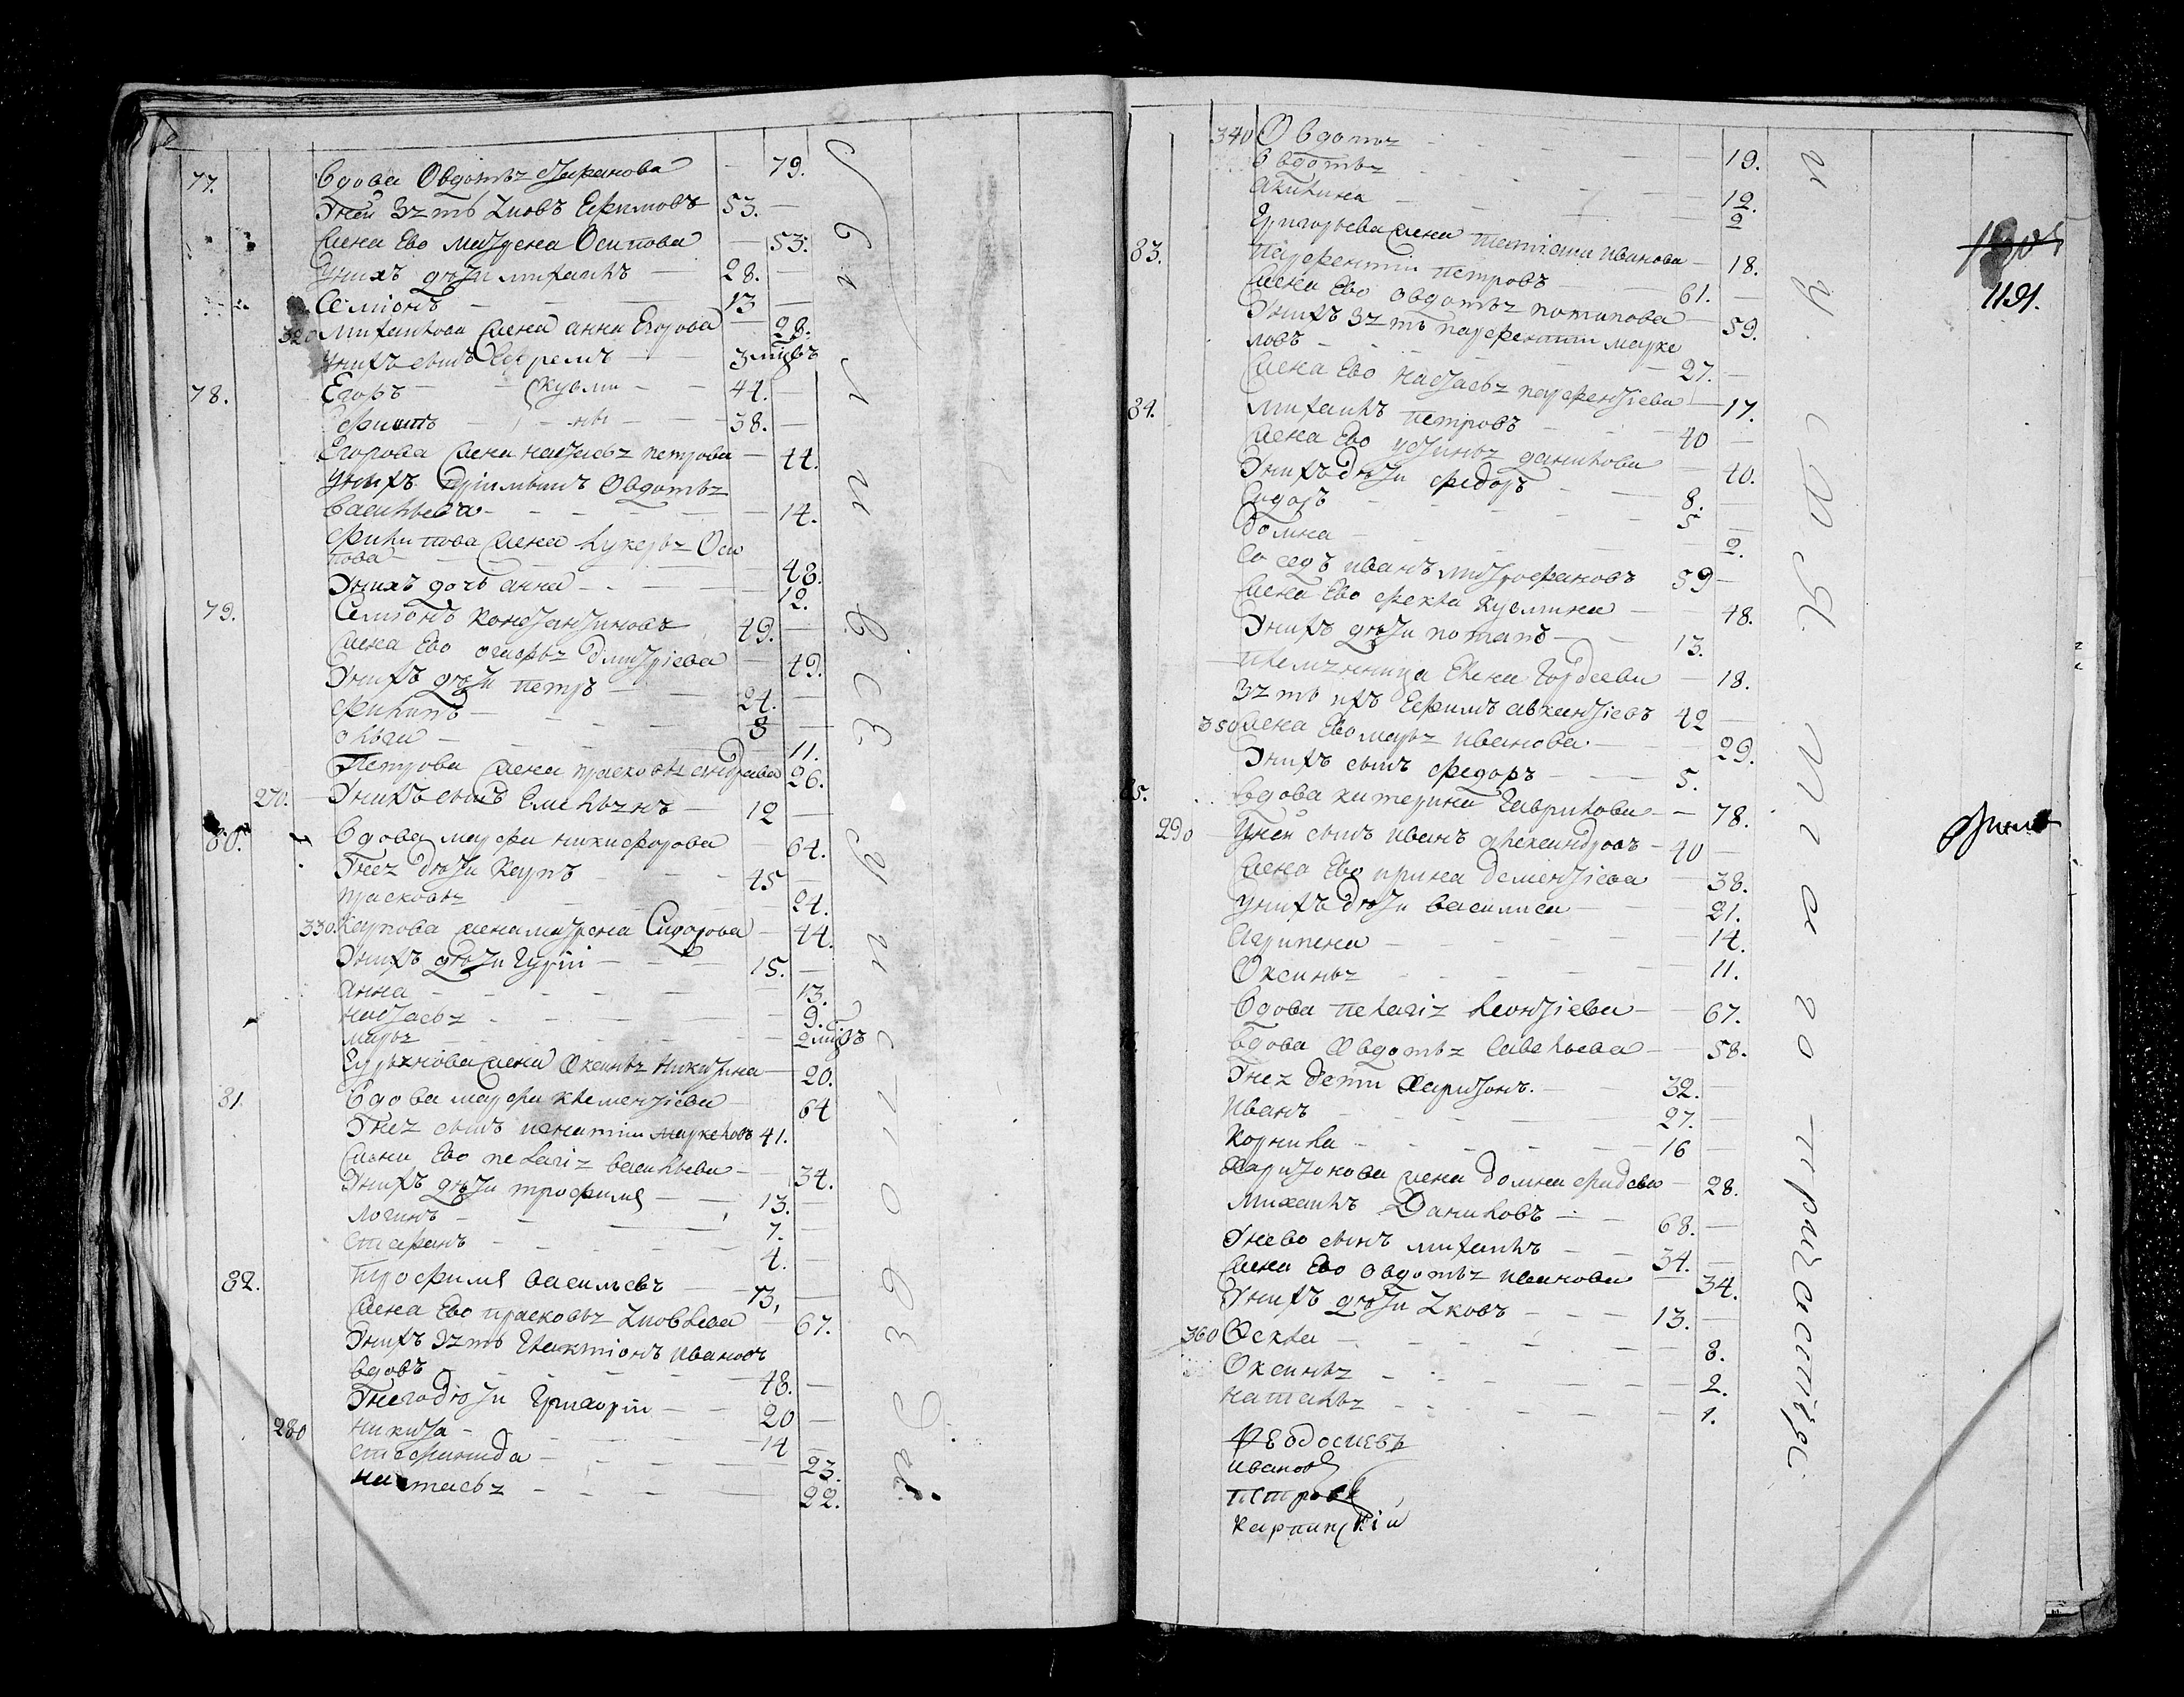 77. Вдова Овдотья Стефанова — 79.
У ней зять Яковъ Ефимовъ 53. —
Жена Ево Матрена Осипова — 53.
У нихъ дети Михаилъ — 28. —
Семионъ — 13 —
320 Михаилова жена Анна Егорова — 28.
У нихъ сынъ Ефремъ —
78. Егоръ — Кузми — 44. —
Филипъ — ны — 38. —
Егорова жена Настасья Петрова — 44.
У нихъ приимышъ Овдотья
Васильева — 14.
Филипова жена Лукерья Оси
пова — 43.
У нихъ дочь Анна — 12.
79. Семионъ Констянтиновъ 49. —
Жена Ево Дмитриева — 49.
У нихъ дети Петръ — 24. —
Филипъ — 8 —
Ольга — 11.
Петрова жена Прасковья 26.
270. У нихъ сынъ Емельянъ — 12 —
80. Вдова Марфа Никифорова — 64.
У нея дети Карпъ — 45 —
Прасковья — 24.
330. Карпова жена Матрена Сидорова — 44.
У нихъ дети Гурiй — 15. —
Анна — 13.
Настасья — 9.
Марья —
Гурьянова жена Оксинья Никитина — 20.
81. Вдова Марфа Клементiева — 64
У нея сынъ Игнатiй Маркеловъ 41.
Жена Ево Пелагiя Васильева — 34.
У нихъ дети Трофимъ — 13. —
Логинъ — 7.
Стефанъ — 4. —
82. Трофимъ Васильевъ — 73, —
Жена Ево Прасковья Яковлева — 67.
У нихъ зять Галактiонъ Ивановъ
вдовъ — 48. —
У него дети Григорiй — 20 —
280 Никита — 14 —
Стефанида — 23.
Настасья — 22.
340 Овдотья — 19.
Овдотья — 12.
Акилина — 2
Григорьева жена Татiана Иванова — 18.
83. Парфентiй Петровъ — 61. —
Жена Ево Овдотья Потапова — 59.
У нихъ зять Парфентiй Марке
ловъ — 27. —
Жена Ево Настасья Парфентiева — 17.
84. Михаилъ Петровъ — 40 —
Жена Ево Устинья Данилова — 40.
У нихъ дети Федоръ — 8. —
Сидоръ — 5 —
Домна — 2.
Соседъ Иванъ Митрофановъ 59 —
Жена Ево Фекла Кузмина — 48.
У нихъ дети Потапъ — 13.
Племянница Елена Гордеева — 18.
Зять ихъ Ефимъ Авксентiевъ 42 —
350 Жена Ево Марья Иванова — 29.
У нихъ сынъ Федоръ — 5.
85. Вдова Катерина Гаврилова — 78.
290 У ней сынъ Иванъ Александровъ — 40 —
Жена Ево Ирина Дементiева — 38.
У нихъ дети Василиса — 21.
Агрипена — 14.
Оксинья — 11.
Вдова Пелагiя Леонтiева — 67.
Вдова Овдотья Савельева — 58.
У нея дети Харитонъ. — 32. —
Иванъ — 27. —
Корнила — 16 —
Харитонова жена Домна — 28.
Михаилъ Даниловъ — 68. —
У нево сынъ Михаилъ — 34. —
Жена Ево Овдотья Иванова — 34.
У нихъ дети Яковъ — 13. —
360 Фекла — 8.
Оксинья — 2.
Наталья — 1.
Феодосиевъ
Ивановъ
Петровъ
Карпинскiй
1191.